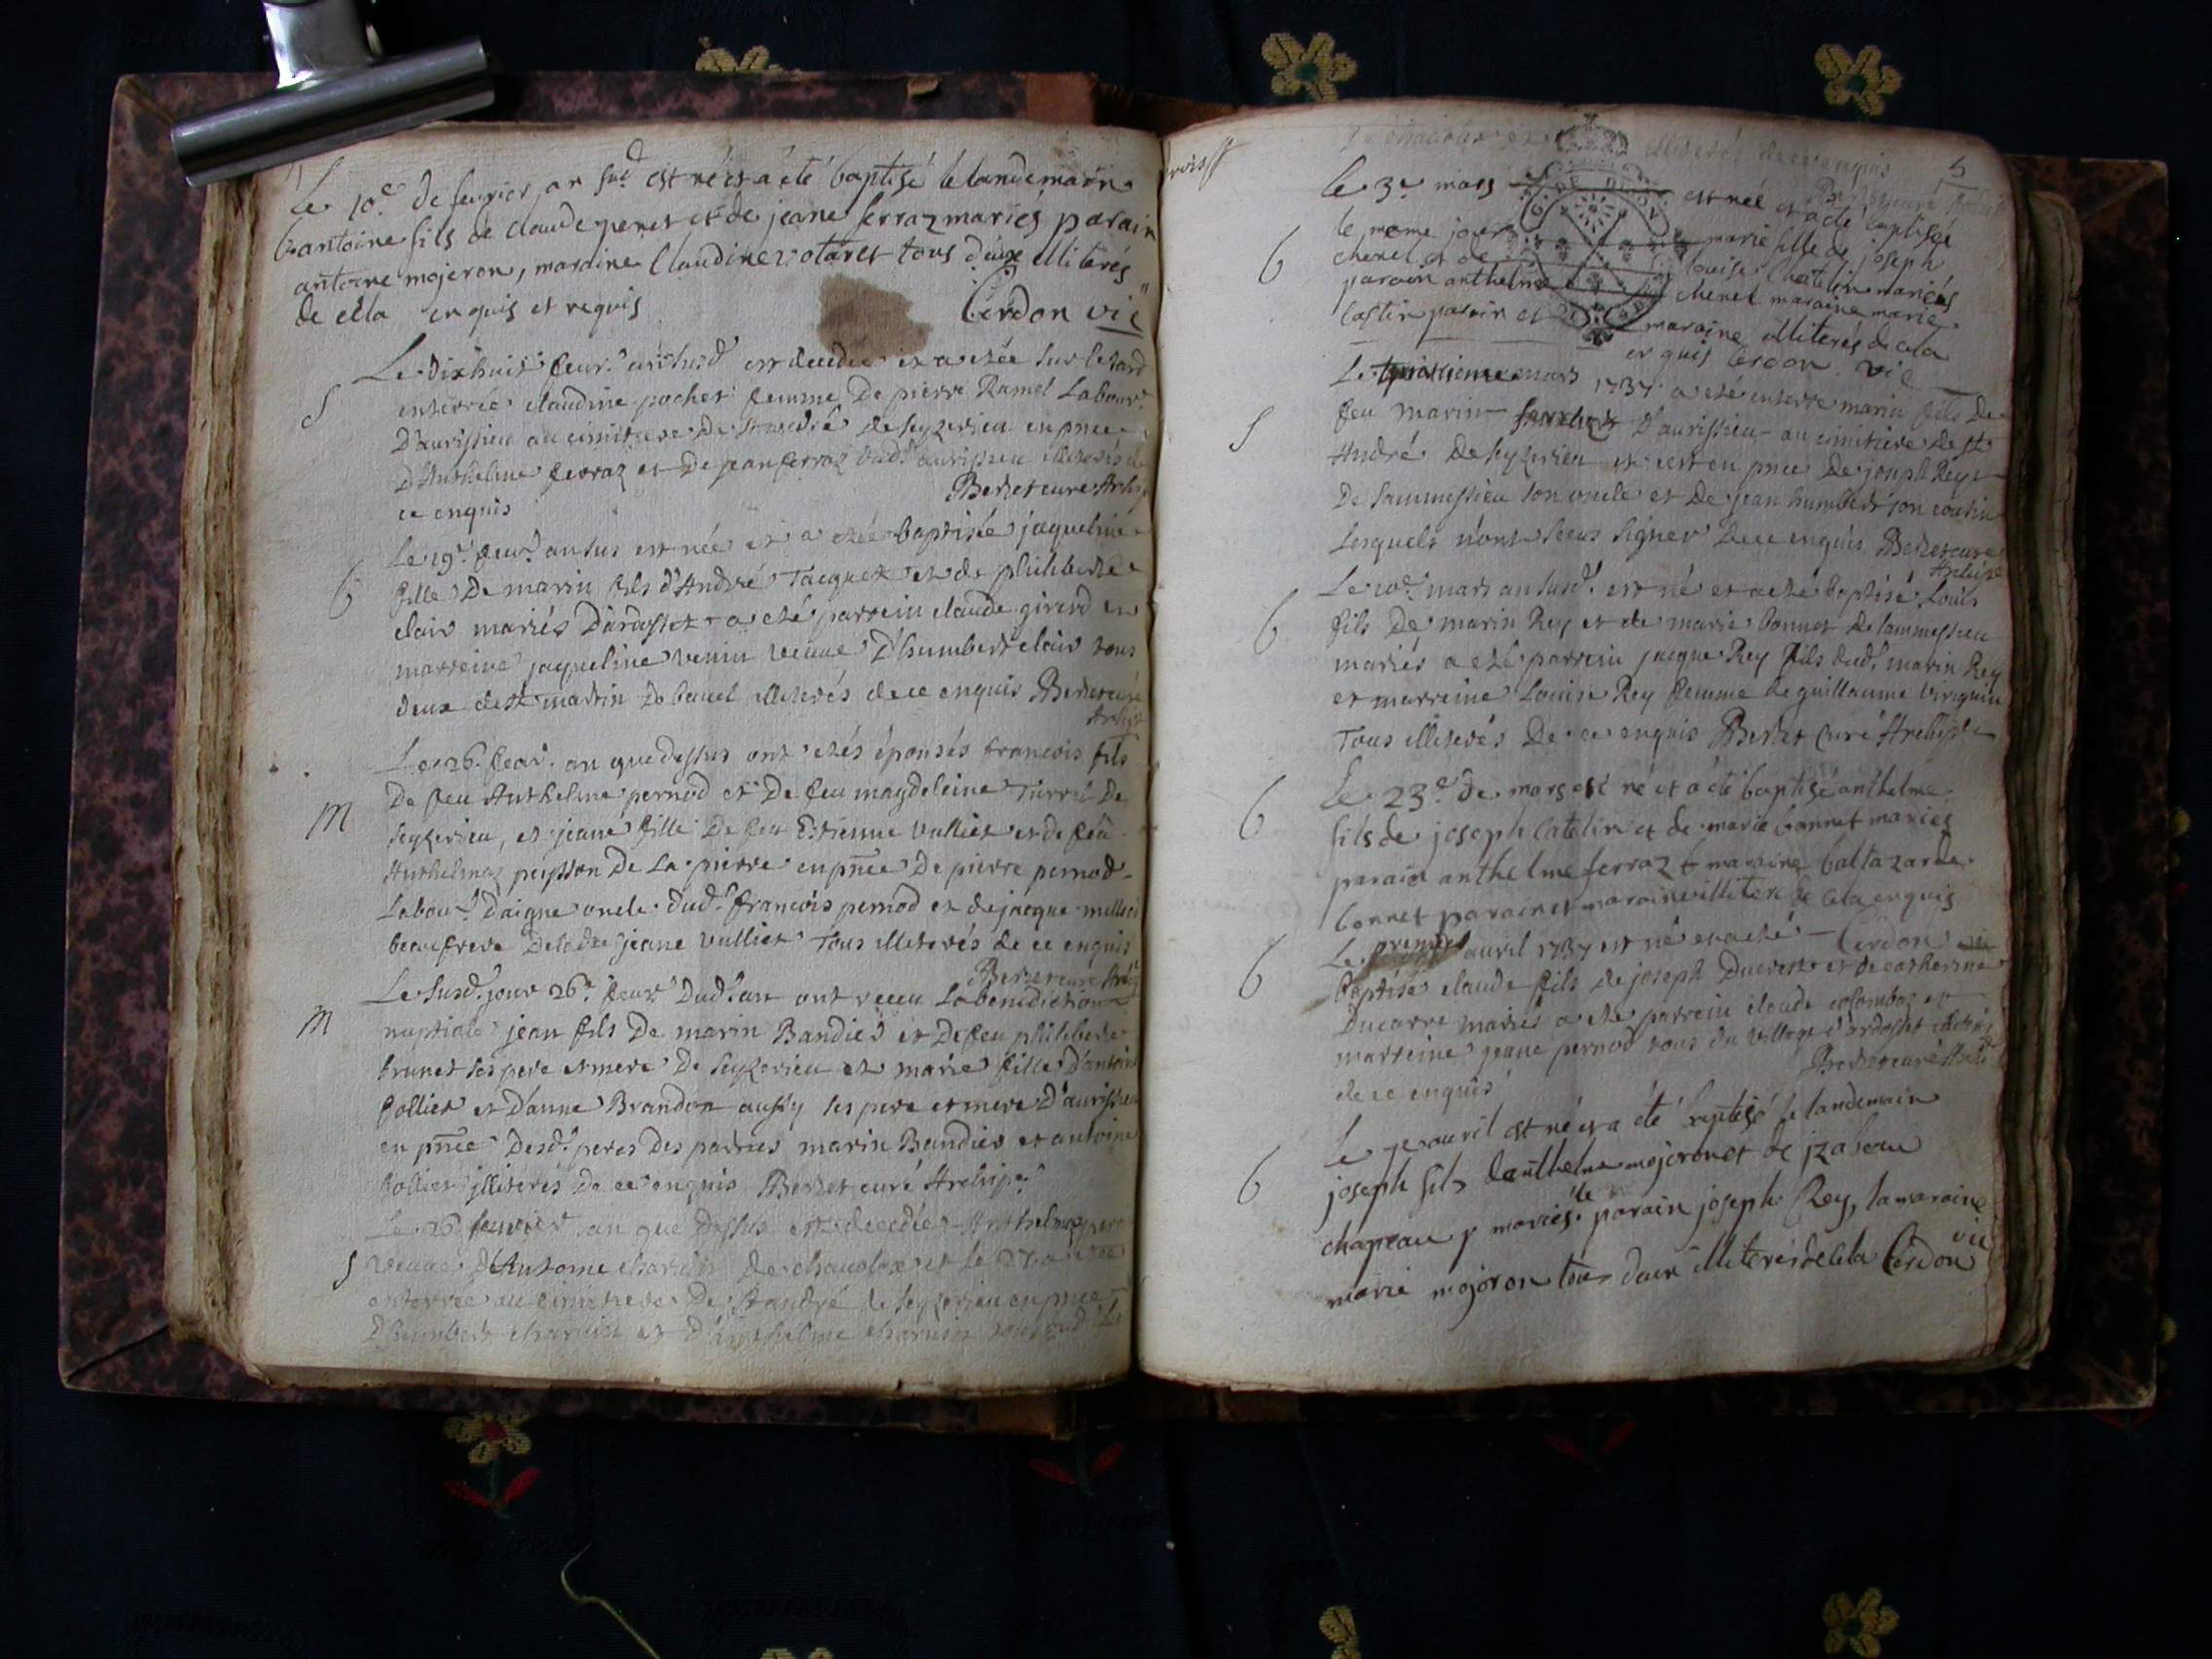 Le 10e de fevrier an sud est né et a été baptisé le landemain
b antoine fils de claude genet et de jeane ferraz mariés parain
antoine mojeron, maraine Claudine votaret tous deux illiterés
de cela enquis et requis Cerdon vic
Le dixhuit feur. an susd. est decedée et a etée sur le tard
S enterrée claudine pochet femme De pierre Ramel Labour.
D'aurissieu au cimitiere De St andré de seyzerieu en pnce
D'Anthelme ferraz et De jean ferraz dud. aurissieu illeterés de
ce enquis Berzet curé Archip
Le 19e feur. an sus est née et a etée baptisée jaqueline
6 fille De marin fils d'André Tacquet et de philiberte
clair mariés D'ardosset a eté parrein claude girerd et
marreine jaqueline venin veuve D'humbert clair tous
deux de St martin De bavel illeterés de ce enquis Berzet curé
Archip
Le 26 feur. an que dessus ont etés épousés francois fils
M De feu Anthelme pernod et De feu magdeleine Turrel De
seyzerieu, et jeane fille De feu Estienne vulliet et de feu
Anthelmaz peysson De La pierre en pnce De pierre pernod
Labour. D'aigne oncle dud. francois pernod et de jacque
beaufrere De ladte jeane vulliet Tous illeterés de ce enquis
Berzet curé Arch
Le susd. jour 26e feur. Dud. an ont receu La benediction
M nuptiale jean fils De marin Bandier et De feu philiberte
brunet ses pere et mere De seyzerieu et marie fille D'antoine
follier et D'anne Brandon aussy ses pere et mere D'aurissieu
en pnce Desd. peres Des parties marin Bandier et antoine
follier illiterés de ce enquis Berzet curé Archip.
Le 26 feuvrier an que Dessus est decedée Anthelmaz
S veuve D'Antoine charuin De chavolex et le 27 a etée
enterrée au cimitiere De St andré de seyzerieu en pnce
D'humbert charuin et D'anthelme charuin
De chavolex et illeterés de ce enquis
5
Le 3e mars est née et a été baptisée
le meme jour marie fille de joseph
6 chenel et de louise Chatelin mariés
parain anthelme chenel maraine marie
Castin parain et maraine illiterés de cela
enquis Cerdon vic
Le troisieme mars 1737 a eté enterre marin fils De
S feu marin D'aurissieu au cimitiere de St
André De seyzerieu et cest en pnce De joseph Rey
De sammessieu son oncle et De jean humbert son cousin
Lesquels n'ont sceus signer De ce enquis Berzet curé
Archip
Le 10e mars an susd. est né et a eté baptisé Louis
6 fils De marin Rey et de marie bonnet De sammessieu
mariés a eté parrein jacque Rey fils dud. marin Rey
et marreine Louise Rey femme de guillaume
Tous illeterés De ce enquis Berzet Curé Archip
Le 23e de mars est né et a été baptisé anthelme
6 fils de joseph Catelin et de marie bonnet mariés
parain anthelme ferraz & maraine baltazarde
bonnet parain et maraine illiter de cela enquis
Cerdon vic
Le premier avril 1737 est né et a eté
6 baptisé claude fils de joseph Ducret et de catherine
Ducarre mariés a eté parrein claude colombaz et
marreine jeane pernod tous du village d'ardosset illeterés
de ce enquis Berzet curé Arch
Le avril est né et a été baptisé le landemain
6 joseph fils danthelme mojeron et de jzabeau
chapeau mariés. parain joseph Rey, la maraine
marie mojeron tous deux illiterés de cela Cerdon vic